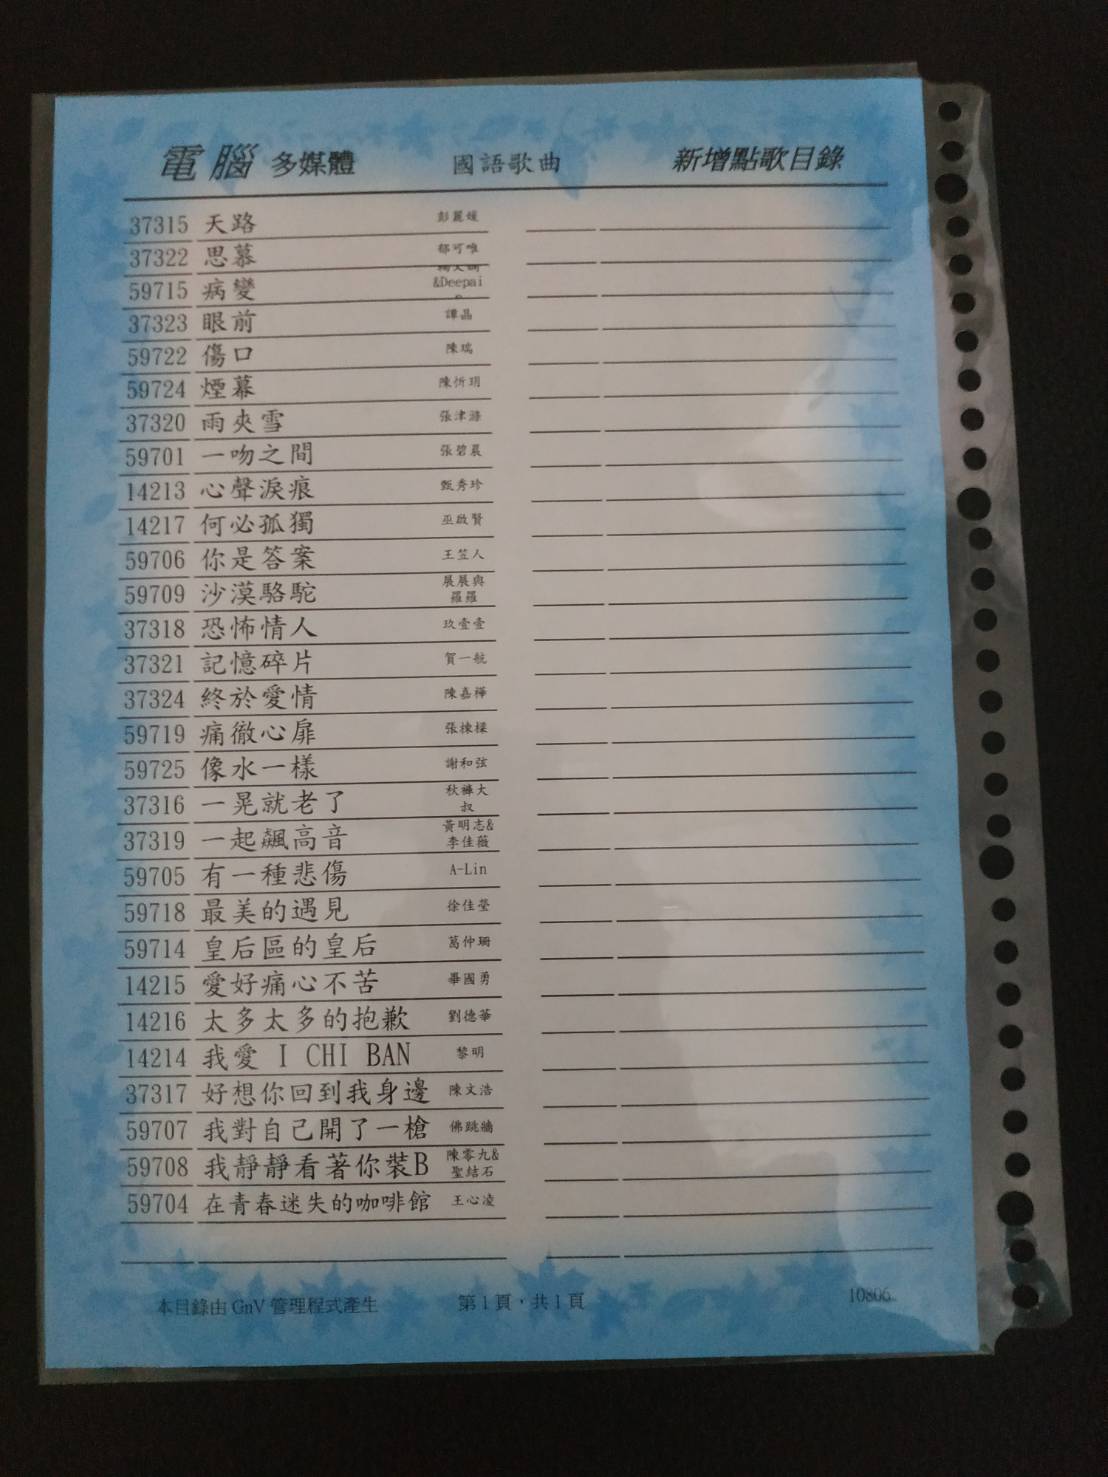 電腦 多媒體 國語歌曲 新增點歌目錄
37315 天路 彭麗媛
37322 思慕 郁可唯
59715 病變 &Deepai
37323 眼前 譚晶
59722 傷口 陳瑞
59724 煙幕 陳忻玥
37320 雨夾雪 張津滌
59701 一吻之間 張碧晨
14213 心聲淚痕 甄秀珍
14217 何必孤獨 巫啟賢
59706 你是答案 王笠人
59709 沙漠駱駝 展展與羅羅
37318 恐怖情人 玖壹壹
37321 記憶碎片 賀一航
37324 終於愛情 陳嘉樺
59719 痛徹心扉 張棟樑
59725 像水一樣 謝和弦
37316 一晃就老了 秋褲大叔
37319 一起飆高音 黃明志&李佳薇
59705 有一種悲傷 A-Lin
59718 最美的遇見 徐佳瑩
59714 皇后區的皇后 葛仲珊
14215 愛好痛心不苦 畢國勇
14216 太多太多的抱歉 劉德華
14214 我愛 I CHI BAN 黎明
37317 好想你回到我身邊 陳文浩
59707 我對自己開了一槍 佛跳牆
59708 我靜靜看著你裝B 陳零九&聖結石
59704 在青春迷失的咖啡館 王心凌
本目錄由 GnV 管理程式產生 第1頁，共1頁 10806